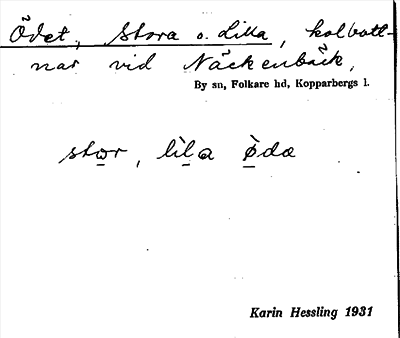 Ödet, Stora o. Lilla, kolbott-
nar vid Näckenbäck,
By sn, Folkare hd, Kopparbergs l.
stor, lìla ø̀da
Karin Hessling 1931